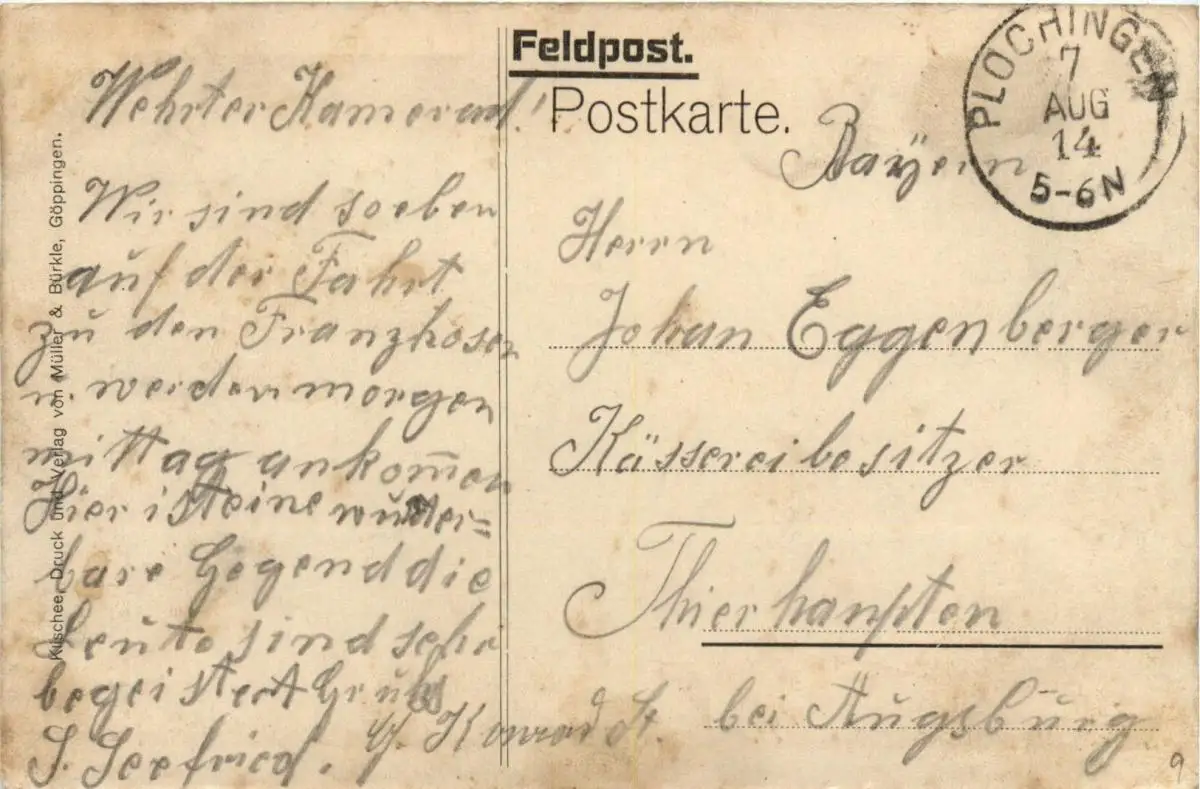 Wehrter Kamerad!
Wir sind soeben
auf der Fahrt
zu den Franzhosen
u. werden morgen
mittag ankom̅en
Hier ist eine wunder=
bare Gegend die
Leute sind sehr
begeistert Gruß
S. Seefried. Konrad St.
Klischee, Druck und Verlag von Müller & Bürkle, Göppingen.
Feldpost.
Postkarte.
PLOCHINGEN
7
AUG
14
5-6N
Bayern
Herrn
Johan Eggenberger
Kässereibesitzer
Thierhaupten
bei Augsburg
9